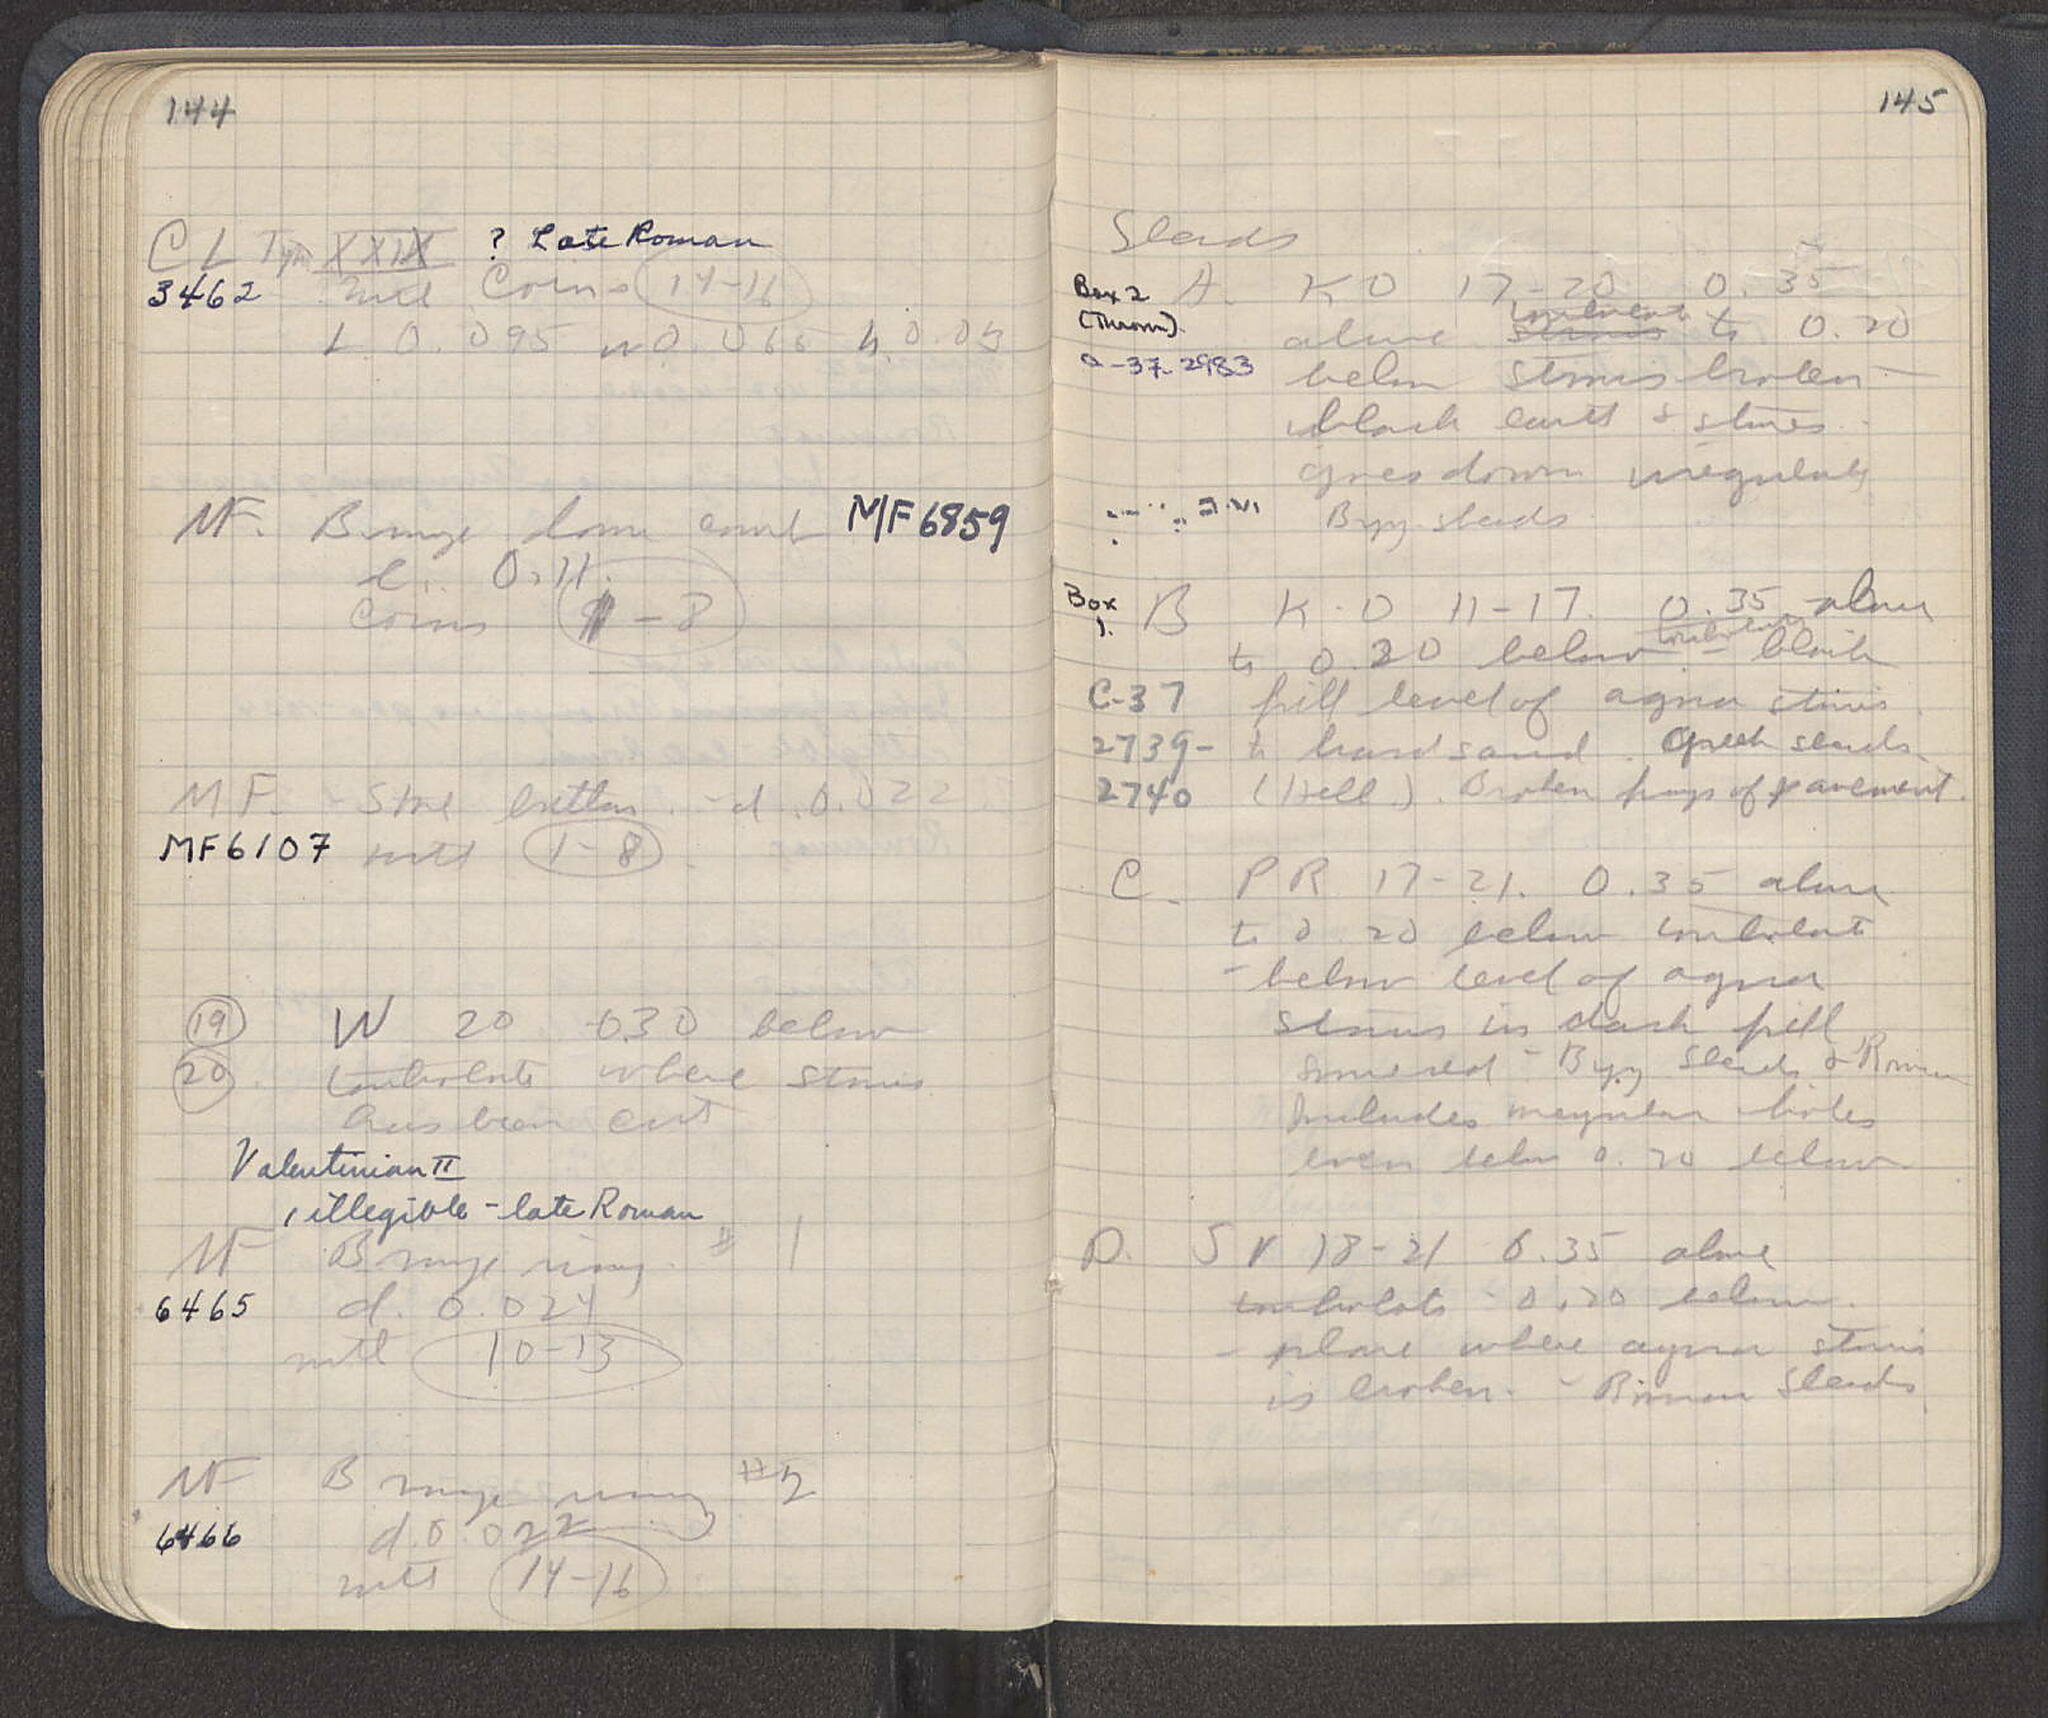 144
CL Type XXIX ? Late Roman
3462 with Coins 14-16
L. 0.095 w 0.066 h. 0.03
MF. Bronze coin MF6859
L. 0.11.
Coins 1-8
MF. - Stone button. - d. 0.022
MF6107 with 1-8.
19 W 20 0.30 below
20. where stosis
has been cut
Valentinian II
1 illegible - late Roman
MF Bronze ring. # 1
6465 d. 0.024
with 10-13
MF Bronze ring #2
6466 d. 0.022
with 14-16
145
Sherds
Box 2 A. K O 17-20 0.35
(Thrown). above to 0.20
C-37-2983 below stosis broken -
black earth & stones.
Goes down irregularly
Byz. sherds
Box B K-O 11-17. 0.35 above
1. to 0.20 below - black
C-37 fill level of agora stosis.
2739- to hard sand. Greek sherds
2740 (Hell.). Broken frags of pavement.
C. P R 17-21. 0.35 above
to 0.20 below
- below level of agora
stosis in dark fill
- Byz sherds & Roman
Includes irregular holes
even below 0.20 below
D. S V 18-21 0.35 above
- 0.20 below.
- place where agora stosis
is broken. - Roman sherds